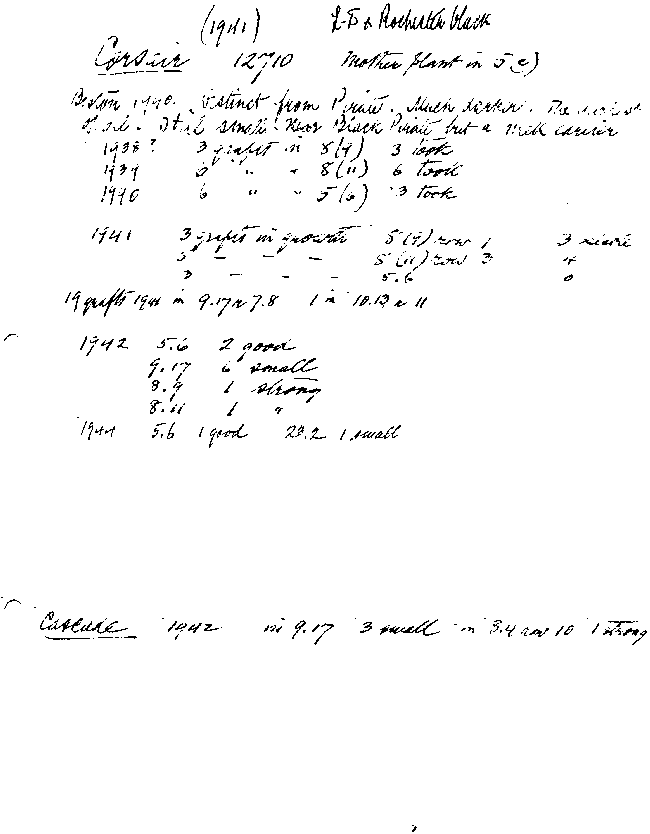 (1941) L-T x Rochester black
Corsair 12710 Mother plant in 5
Boston 1940. Distinct from Pirate. Much darker. The
of all. small. Near Black Pirate but a
1938? 3 grafts in 8(9) 3 took
1939 6 " " 8(11) 6 took
1940 6 " " 5(6) 3 took
1941 3 grafts in growth 8(9) row 1 3
5 — — — 8(11) row 3 4
3 — — — 5.6 0
19 grafts 1941 in 9.17 & 7.8 1 in 10.13 & 11
1942 5.6 2 good
9.17 6 small
8.9 1 strong
8.11 1 "
1944 5.6 1 good 23.2 1 small
Cascade 1942 in 9.17 3 small in 3.4 row 10 1 strong